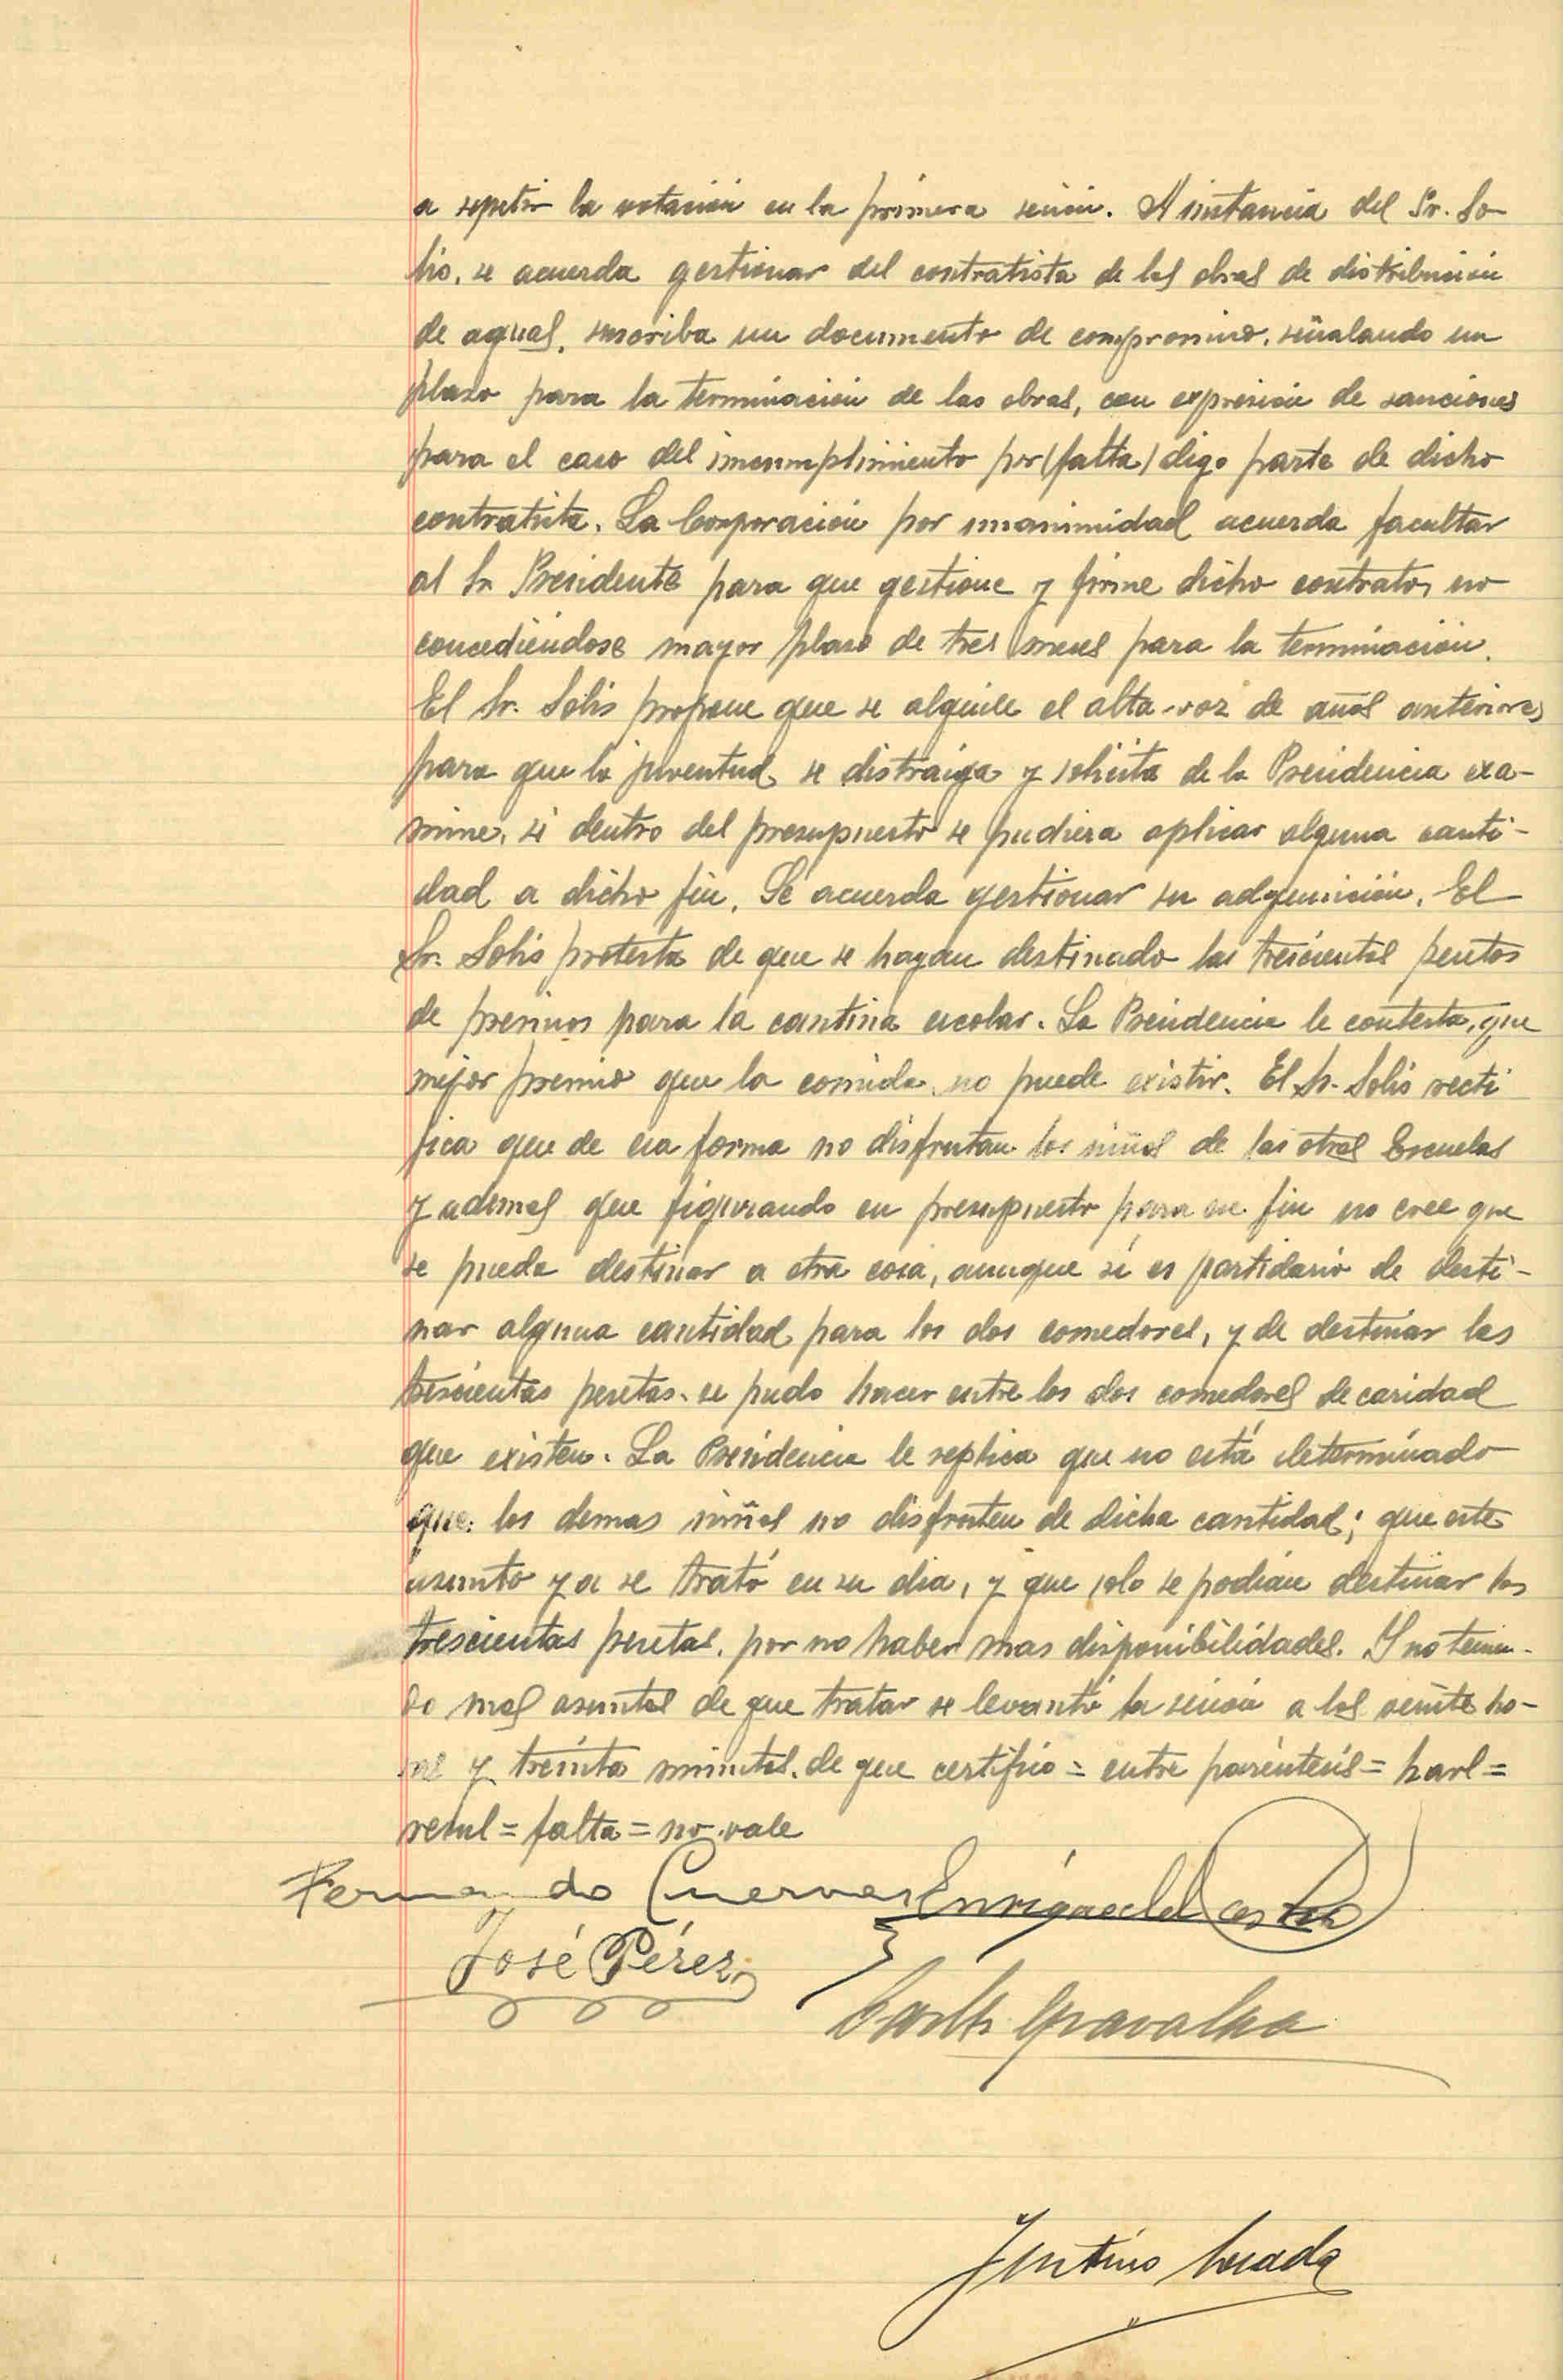 a repetir la votación en la primera sesión. A instancia del Sr. So-
lís, se acuerda gestionar del contratista de las obras de distribución
de aguas, suscriba un documento de compromiso, señalando un
plazo para la terminación de las obras, con expresión de sanciones
para el caso del incumplimiento por (falta) digo parte de dicho
contratista. La Corporación por unanimidad acuerda facultar
al Sr Presidente para que gestione y firme dicho contrato, no
concediéndose mayor plazo de tres meses para la terminación.
El Sr. Solís propone que se alquile el alta-voz de años anteriores
para que la juventud se distraiga y solicita de la Presidencia exa-
mine, si dentro del presupuesto se pudiera aplicar alguna canti-
dad a dicho fin. Se acuerda gestionar su adquisición. El
Sr. Solís protesta de que se hayan destinado las trescientas pesetas
de premios para la cantina escolar. La Presidencia le contesta, que
mejor premio que la comida no puede existir. El Sr. Solís recti
fica que de esa forma no disfrutan los niños de las otras Escuelas
y ademas que figurando en presupuesto para ese fin no cree que
se pueda destinar a otra cosa, aunque si es partidario de desti-
nar alguna cantidad para los dos comedores, y de destinar las
trescientas pesetas se pudo hacer entre los dos comedores de caridad
que existen. La Presidencia le replica que no está determinado
que los demas niños no disfruten de dicha cantidad; que este
asunto ya se trató en su dia, y que solo se podian destinar las
trescientas pesetas, por no haber mas disponibilidades. Y no tenien-
do mas asuntos de que tratar se levantó la sesión a las veinte ho-
ras y treinta minutos. de que certifico = entre paréntesis = harl =
= falta = no vale
Fernando Cuervas Enrique del Castro
José Pérez
Justino